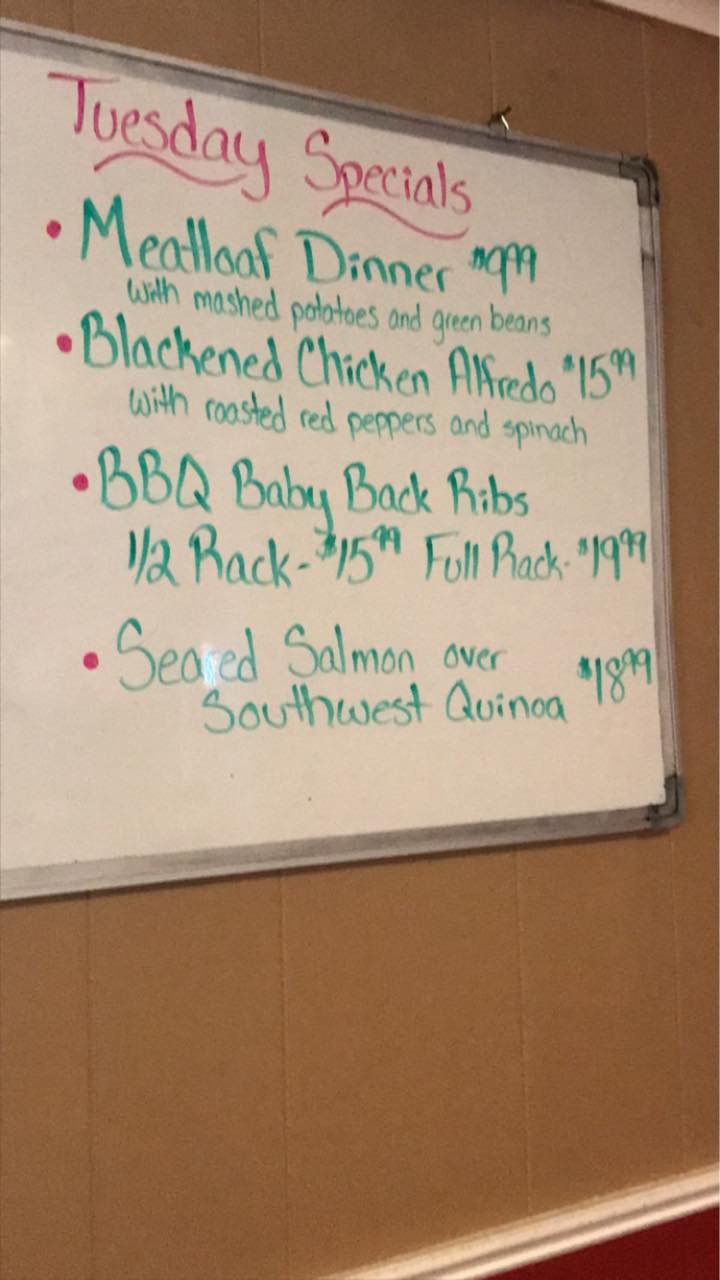 Tuesday Specials
• Meatloaf Dinner $9.99
with mashed potatoes and green beans
• Blackened Chicken Alfredo $15.99
with roasted red peppers and spinach
• BBQ Baby Back Ribs
1/2 Rack - $15.99 Full Rack - $19.99
• Seared Salmon over $18.99
Southwest Quinoa